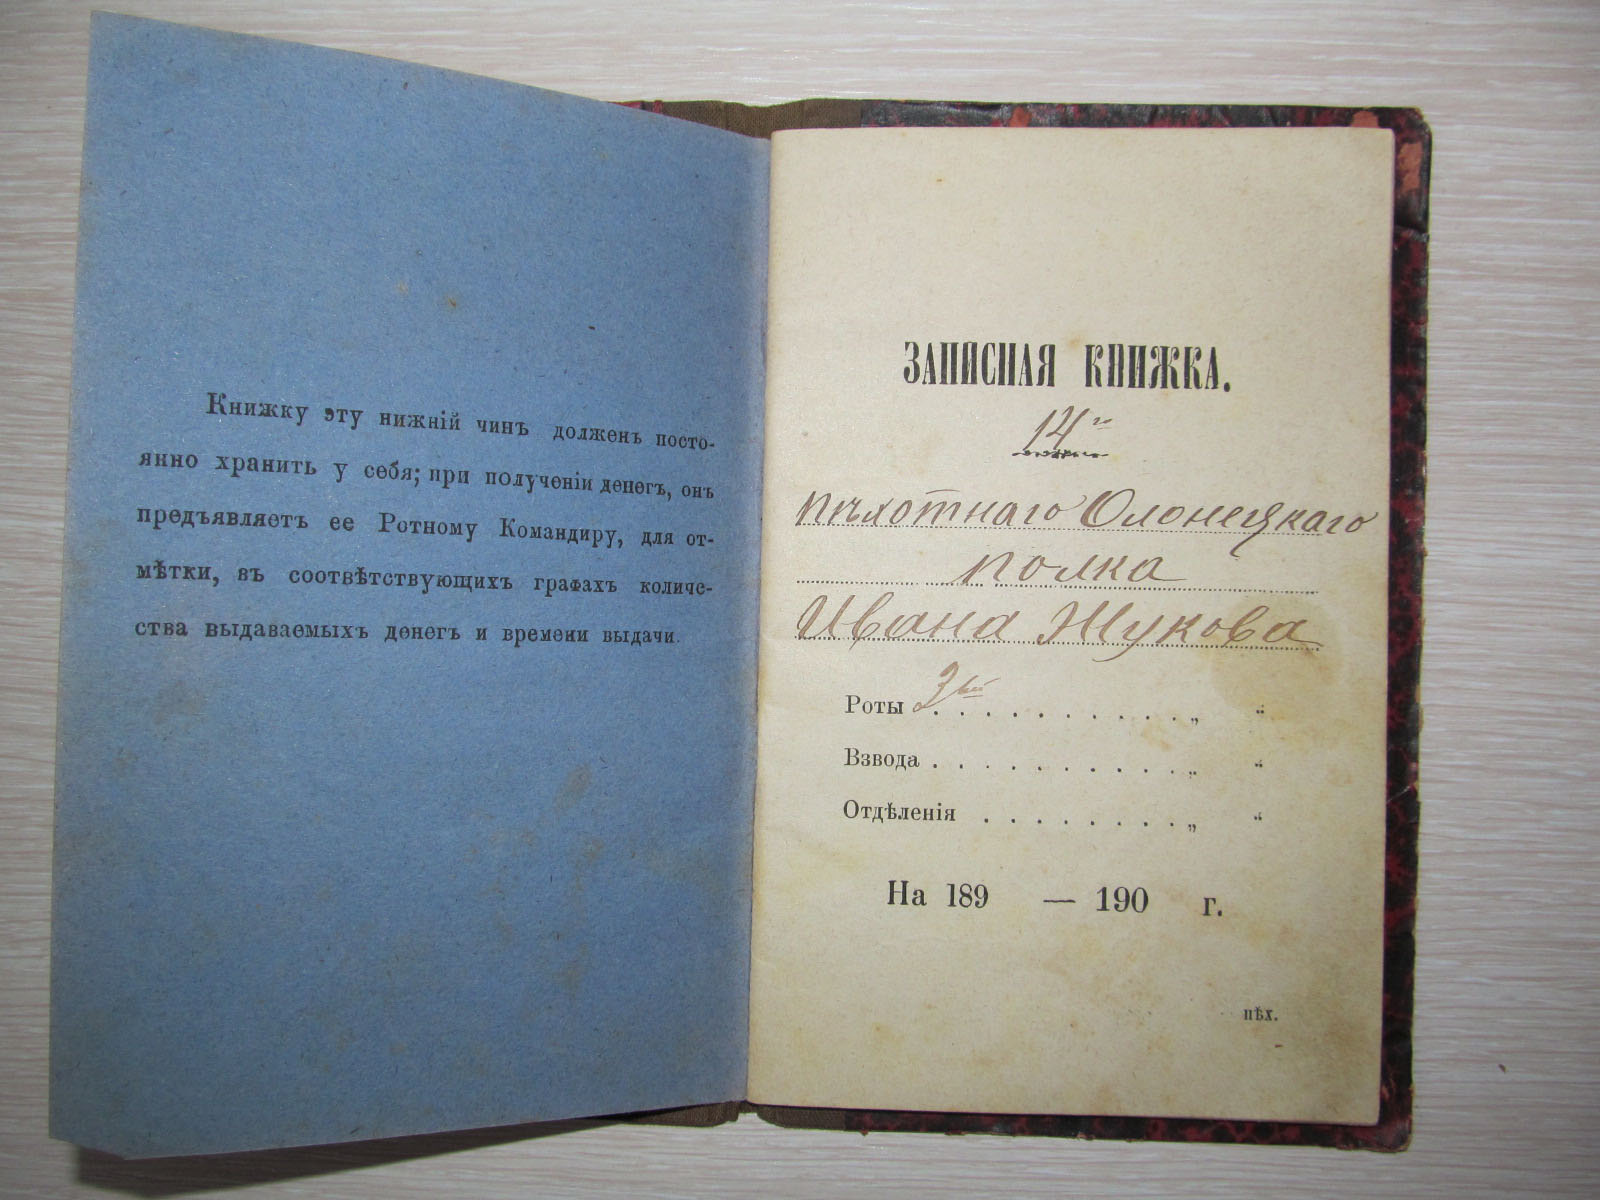 Книжку эту нижній чинъ долженъ посто-
янно хранить у себя; при полученіи денегъ, онъ
предъявляетъ ее Ротному Командиру, для от-
мѣтки, въ соотвѣтствующихъ графахъ количе-
ства выдаваемыхъ денегъ и времени выдачи.
ЗАПИСНАЯ КНИЖКА.
14го
пѣхотнаго Олонецкаго
полка
Ивана Жукова
Роты 3ей . . . . . . . . . . „ “
Взвода . . . . . . . . . . „ “
Отдѣленія . . . . . . . . „ “
На 189 — 190 г.
пѣх.